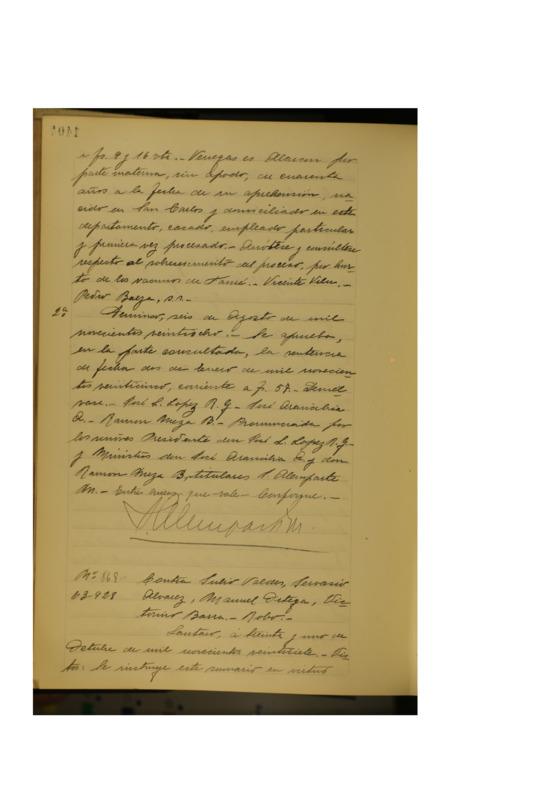 a fs. 9 y 16 vta. - Venegas es Alarcon por
parte materna, sin apodo, de cuarenta
años a la fecha de su aprehensión, na-
cido en San Carlos y domiciliado en este
departamento, casado, empleado particular
y primera vez procesado. - Anótese y consúltese
respecto al sobreseimiento del proceso, por hur-
to de los vacunos de Tomé. - Vicente Villa. -
Pedro Baeza, s.s. -
2ª Temuco, seis de Agosto de mil
novecientos veintiocho. - Se aprueba,
en la parte consultada, la sentencia
de fecha dos de Enero de mil novecien-
tos veinticinco, corriente a fs. 57. - Devuél-
vase. - José L. Lopez R. G. - José Arancibia
A. - Ramon Meza B. - Pronunciada por
los señores Presidente don José L. Lopez R. G.
y Ministros don José Arancibia A. y don
Ramon Meza B, titulares S. Alemparte
M. - Entre que vale - Conforme. -
Alemparte M.
Nº 868 Contra Julio Valdes, Servando
63-928 Alvarez, Manuel Ortega, Vic-
torino Barra. - Robo. -
Lautaro, a treinta y uno de
Octubre de mil novecientos veintisiete. - Vis-
tos: Se instruye este sumario en virtud